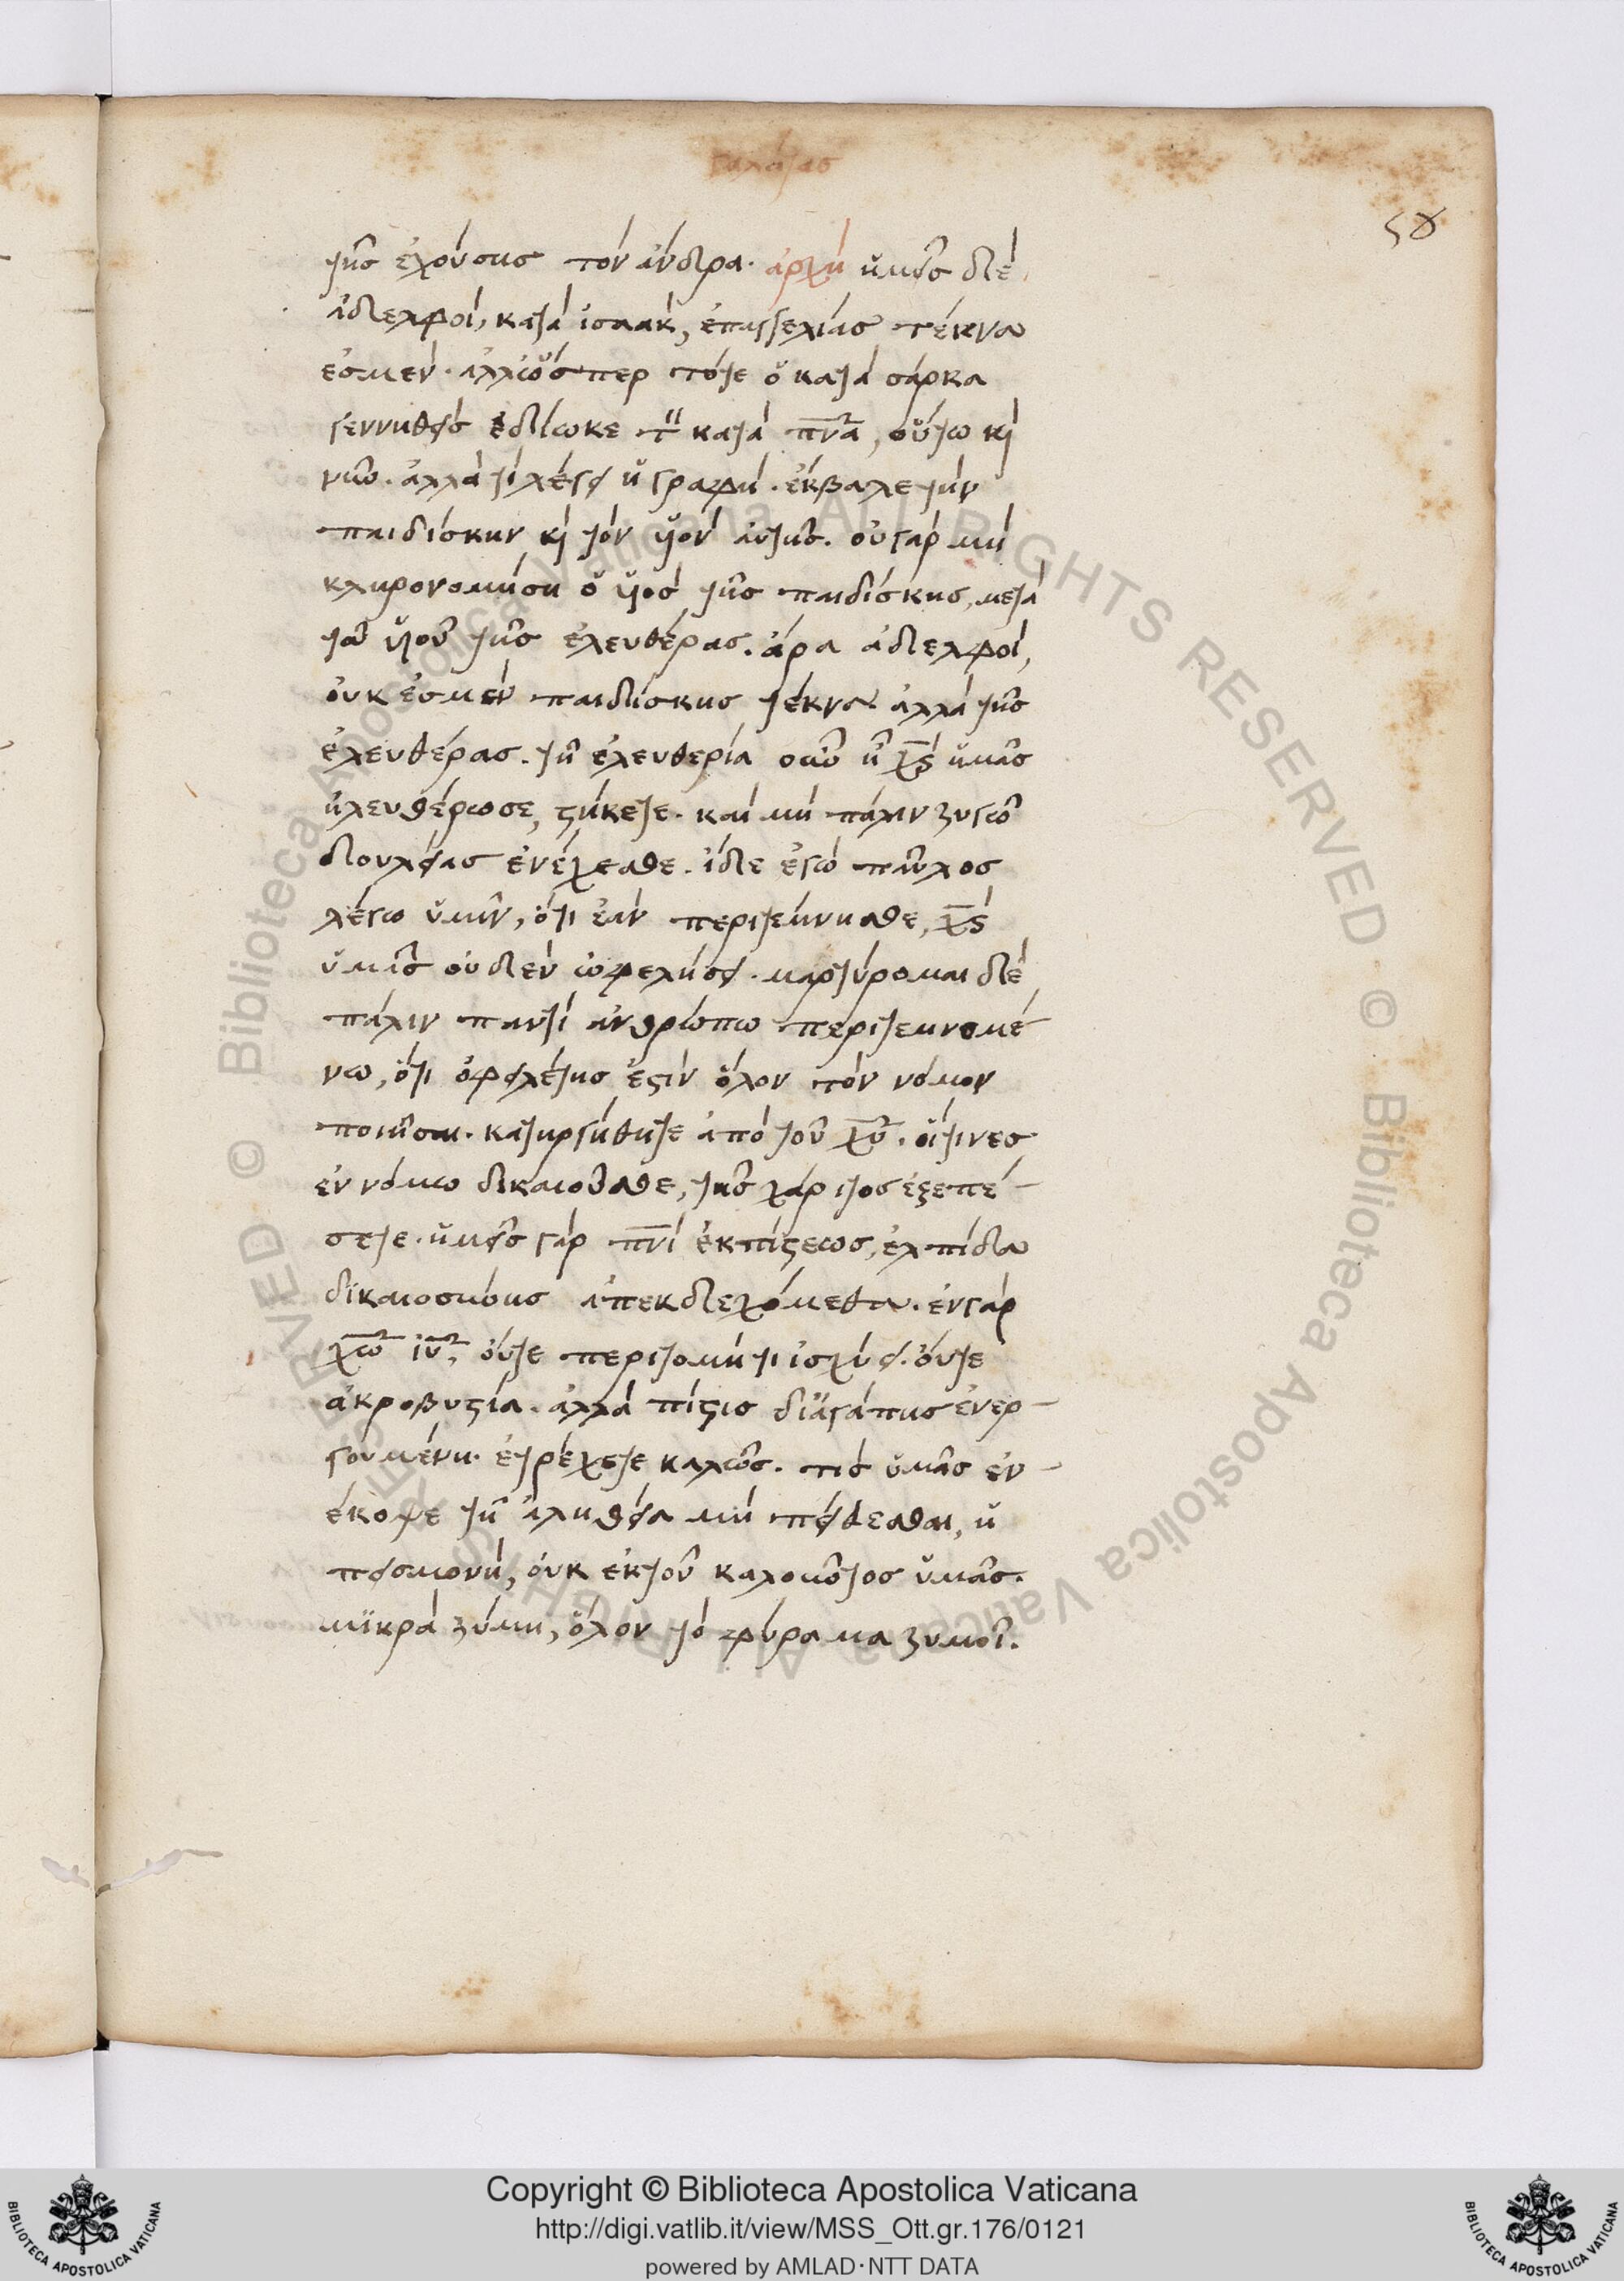 γαλάτας
58
τῆς ἐχούσης τὸν ἄνδρα. ἀρχὴ ἡμεῖς δὲ
ἀδελφοὶ, κατὰ ἰσαὰκ, ἐπαγγελίας τέκνα
ἐσμέν. ἀλλ' ὥσπερ τότε ὁ κατὰ σάρκα
γεννηθεὶς ἐδίωκε τ̈ κατὰ πν̅α, οὕτω κὶ
νῦν. ἀλλὰ τί λέγει ἡ γραφή. ἔκβαλε τὴν
παιδίσκην κὶ τὸν υἱὸν αὐτῆς. οὐ γὰρ μὴ
κληρονομήση ὁ υἱὸς τῆς παιδίσκης, μετὰ
τοῦ υἱοῦ τῆς ἐλευθέρας. ἄρα ἀδελφοὶ,
οὐκ ἐσμὲν παιδίσκης τέκνα. ἀλλὰ τῆς
ἐλευθέρας. τῆ ἐλευθερία οὖν ἧ χ̅ς ἡμᾶς
ἠλευθέρωσε, στήκετε. καὶ μὴ πάλιν ζυγῶ
δουλείας ἐνέχεσθε. ἴδε ἐγὼ παῦλος
λέγω ὑμῖν, ὅτι ἐὰν περιτέμνησθε, χ̅ς
ὑμᾶς οὐδὲν ὠφελήσει. μαρτύρομαι δὲ
πάλιν παντὶ ἀνθρώπω περιτεμνομέ
νω, ὅτι ὀφειλέτης ἐστὶν ὅλον τὸν νόμον
ποιῆσαι. κατηργήθητε ἀπὸ τοῦ χ̅υ. οἵτινες
ἐν νόμω δικαιοῦσθε, τῆς χάριτος ἐξεπέ-
σετε. ἡμεῖς γὰρ πν̅ι ἐκ πίστεως, ἐλπίδα
δικαιοσύνης ἀπεκδεχόμεθα. ἐν γὰρ
χ̅ω ἰ̅υ, οὔτε περιτομή τι ἰσχύει. οὔτε
ἀκροβυστία. ἀλλὰ πίστις δι' ἀγάπης ἐνερ-
γουμένη. ἐτρέχετε καλῶς. τίς ὑμᾶς ἐν-
έκοψε τῆ ἀληθεία μὴ πείθεσθαι, ἡ
πεισμονὴ, οὐκ ἐκ τοῦ καλοῦντος ὑμᾶς.
μϊκρὰ ζύμη, ὅλον τὸ φύραμα ζυμοῖ.
© Biblioteca Apostolica Vaticana ALL RIGHTS RESERVED © Biblioteca Apostolica Vaticana ALL RIGHTS RESERVED
Copyright © Biblioteca Apostolica Vaticana
http://digi.vatlib.it/view/MSS_Ott.gr.176/0121
powered by AMLAD·NTT DATA
BIBLIOTECA APOSTOLICA VATICANA
BIBLIOTECA APOSTOLICA VATICANA